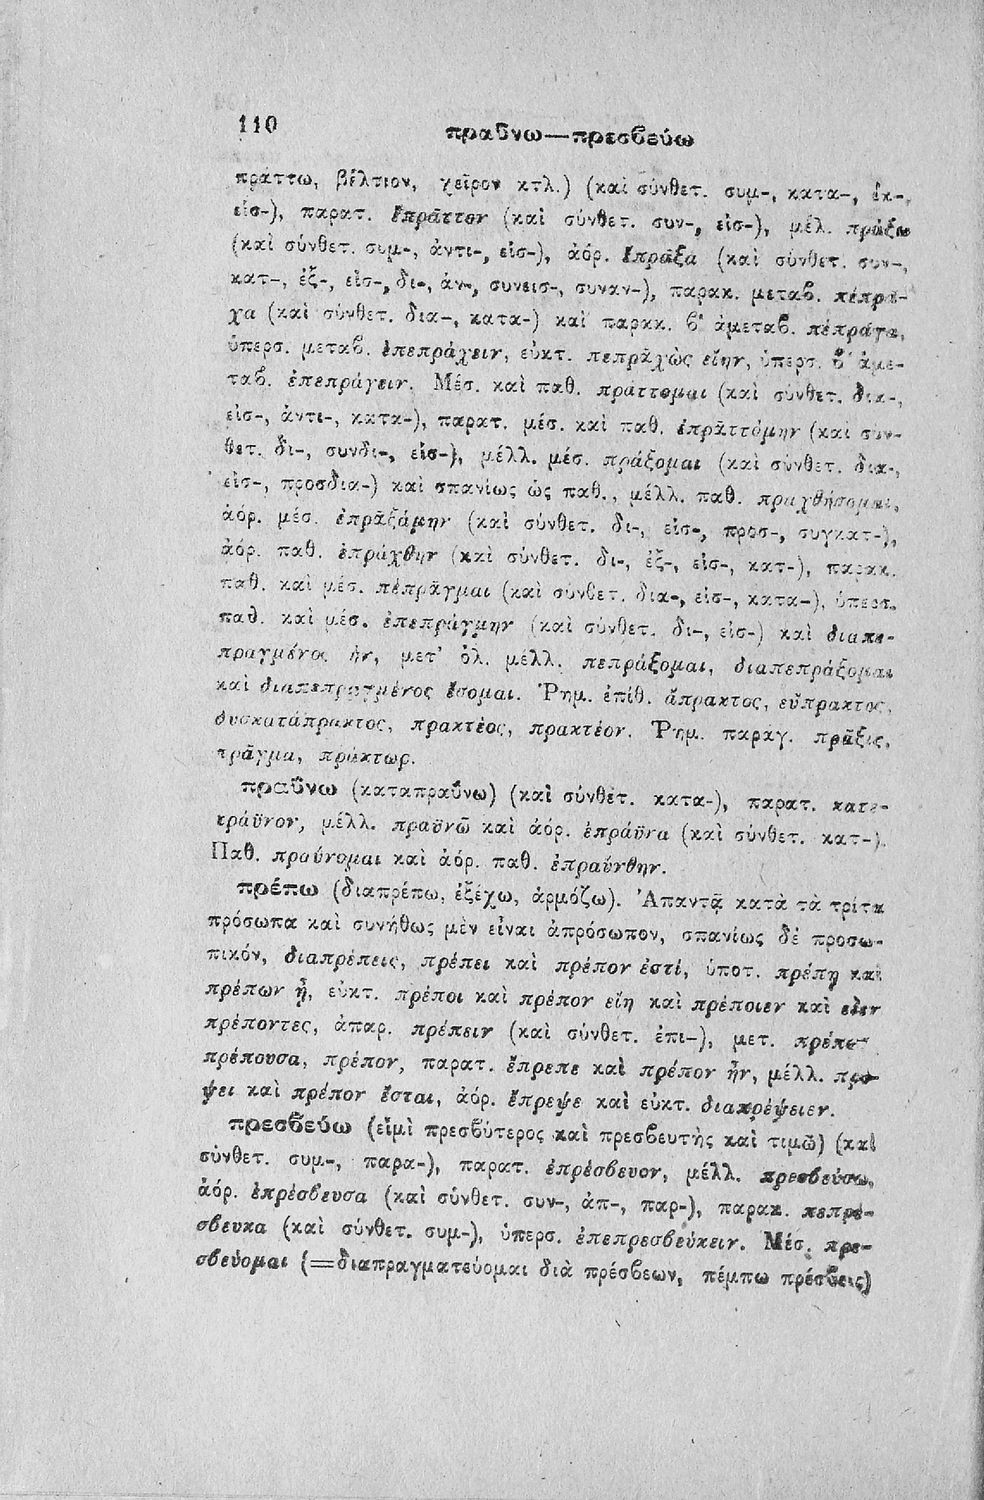 110
πραΰνω—πρεσβεύω
πράττω, βέλτιον, χεῖρον κτλ.) (καὶ σύνθετ. συμ-, κατα-, ἐκ-,
εἰσ-), παρατ. ἔπρᾱττον (καὶ σύνθετ. συν-, εἰσ-), μέλ. πράξω
(καὶ σύνθετ. συμ-, ἀντι-, εἰσ-), ἀόρ. ἔπρᾱξα (καὶ σύνθετ. συν-,
κατ-, ἐξ-, εἰσ-, δι-, ἀν-, συνεισ-, συναν-), παρακ. μεταβ. πέπρα-
χα (καὶ σύνθετ. δια-, κατα-) καὶ παρακ. β΄ ἀμεταβ. πέπρᾱγα,
ὑπερσ. μεταβ. ἐπεπράχειν, εὐκτ. πεπρᾱχὼς εἴην, ὑπερσ. β΄ ἀμε-
ταβ. ἐπεπράγειν. Μέσ. καὶ παθ. πράττομαι (καὶ σύνθετ. δια-,
εἰσ-, ἀντι-, κατα-), παρατ. μέσ. καὶ παθ. ἐπρᾱττόμην (καὶ σύν-
θετ. δι-, συνδι-, εἰσ-), μέλλ. μέσ. πράξομαι (καὶ σύνθετ. δια-,
εἰσ-, προσδια-) καὶ σπανίως ὡς παθ., μέλλ. παθ. πραχθήσομαι,
ἀόρ. μέσ. ἐπρᾱξάμην (καὶ σύνθετ. δι-, εἰσ-, προσ-, συγκατ-),
ἀόρ. παθ. ἐπράχθην (καὶ σύνθετ. δι-, ἐξ-, εἰσ-, κατ-), παρακ.
παθ. καὶ μέσ. πέπρᾱγμαι (καὶ σύνθετ. δια-, εἰσ-, κατα-), ὑπερσ.
παθ. καὶ μέσ. ἐπεπράγμην (καὶ σύνθετ. δι-, εἰσ-) καὶ διαπε-
πραγμένος ἦν, μετ' ὀλ. μέλλ. πεπράξομαι, διαπεπράξομαι
καὶ διαπεπραγμένος ἔσομαι. Ῥημ. ἐπίθ. ἄπρακτος, εὔπρακτος,
δυσκατάπρακτος, πρακτέος, πρακτέον. Ῥημ. παράγ. πρᾶξις,
πρᾶγμα, πράκτωρ.
πραΰνω (καταπραΰνω) (καὶ σύνθετ. κατα-), παρατ. κατε-
πράϋνον, μέλλ. πραϋνῶ καὶ ἀόρ. ἐπράϋνα (καὶ σύνθετ. κατ-).
Παθ. πραΰνομαι καὶ ἀόρ. παθ. ἐπραΰνθην.
πρέπω (διαπρέπω, ἐξέχω, ἁρμόζω). Ἀπαντᾷ κατὰ τὰ τρίτα
πρόσωπα καὶ συνήθως μὲν εἶναι ἀπρόσωπον, σπανίως δὲ προσω-
πικόν, διαπρέπεις, πρέπει καὶ πρέπον ἐστί, ὑποτ. πρέπῃ καὶ
πρέπων ᾖ, εὐκτ. πρέποι καὶ πρέπον εἴη καὶ πρέποιεν καὶ εἶεν
πρέποντες, ἀπαρ. πρέπειν (καὶ σύνθετ. ἐπι-), μετ. πρέπων
πρέπουσα, πρέπον, παρατ. ἔπρεπε καὶ πρέπον ἦν, μέλλ. πρέ-
ψει καὶ πρέπον ἔσται, ἀόρ. ἔπρεψε καὶ εὐκτ. διαπρέψειεν.
πρεσβεύω (εἰμὶ πρεσβύτερος καὶ πρεσβευτὴς καὶ τιμῶ) (καὶ
σύνθετ. συμ-, παρα-), παρατ. ἐπρέσβευον, μέλλ. πρεσβεύσω,
ἀόρ. ἐπρέσβευσα (καὶ σύνθετ. συν-, ἀπ-, παρ-), παρακ. πεπρέ-
σβευκα (καὶ σύνθετ. συμ-), ὑπερσ. ἐπεπρεσβεύκειν. Μέσ. πρε-
σβεύομαι (=διαπραγματεύομαι διὰ πρέσβεων, πέμπω πρέσβεις)